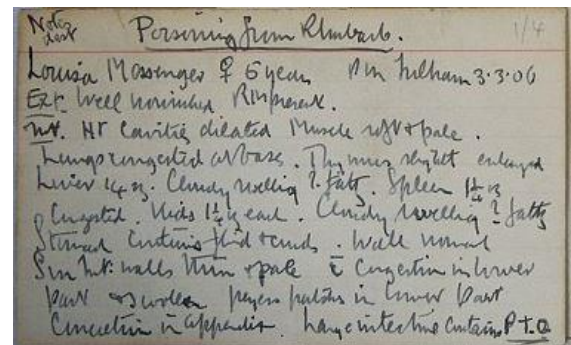 Notes
last
Poisoning from Rhubarb. 1/4
Louisa Mossenger ♀ 6 years PM Fulham 3.3.06
Ext. Well nourished RM present.
Int. Ht Cavities dilated Muscle soft & pale.
Lungs congested at base. Thymus slight enlarged
Liver 14 oz. Cloudy swelling ? fatty. Spleen 1½ oz
Congested. Kids 1½ oz each. Cloudy swelling ? fatty
Stomach Contains fluid & curds. Walls normal
Sm Int: walls thin & pale c̄ Congestion in lower
part & swollen peyers patches in lower part
Concretion in appendix. Large intestine Contains P.T.O